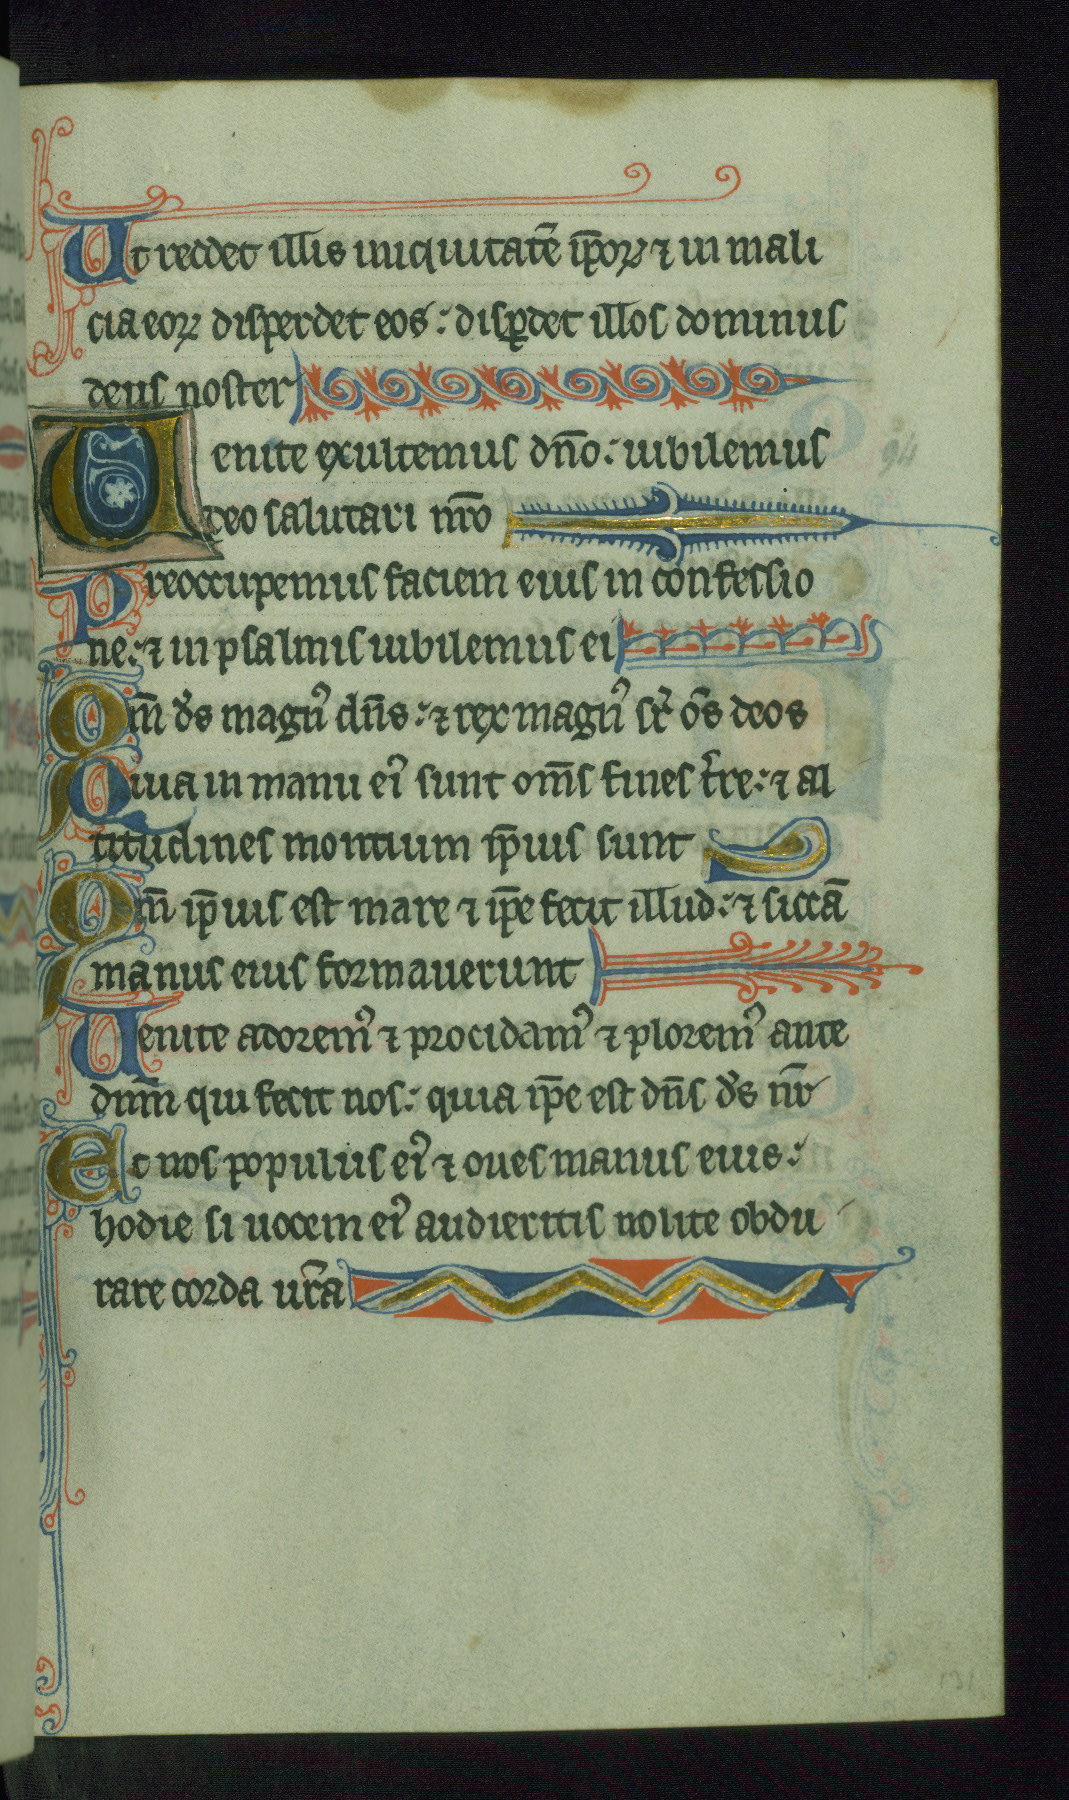 Ut reddet illis iniquitatē ip̄oꝝ ⁊ in mali
cia eoꝝ disperdet eos : disꝑdet illos dominus
deus noster
Uenite exultemus dn̄o : iubilemus
94
deo salutari nr̄o
Preoccupemus faciem eius in confessio
ne : ⁊ in psalmis iubilemus ei
Qm̄ ds̄ magnꝰ dn̄s : ⁊ rex magnꝰ sr̄ om̄s deos
Quia in manu eiꝰ sunt om̄s fines t̄re : ⁊ al
titudines montium ip̄ius sunt
Qm̄ ip̄ius est mare ⁊ ip̄e fecit illud : ⁊ siccā
manus eius formauerunt
Uenite adoremꝰ ⁊ procidamꝰ ⁊ ploremꝰ ante
dn̄m qui fecit nos : quia ip̄e est dn̄s ds̄ nr̄
Et nos populus eiꝰ ⁊ oues manus eius :
hodie si uocem eiꝰ audieritis nolite obdu
rare corda ur̄a
131